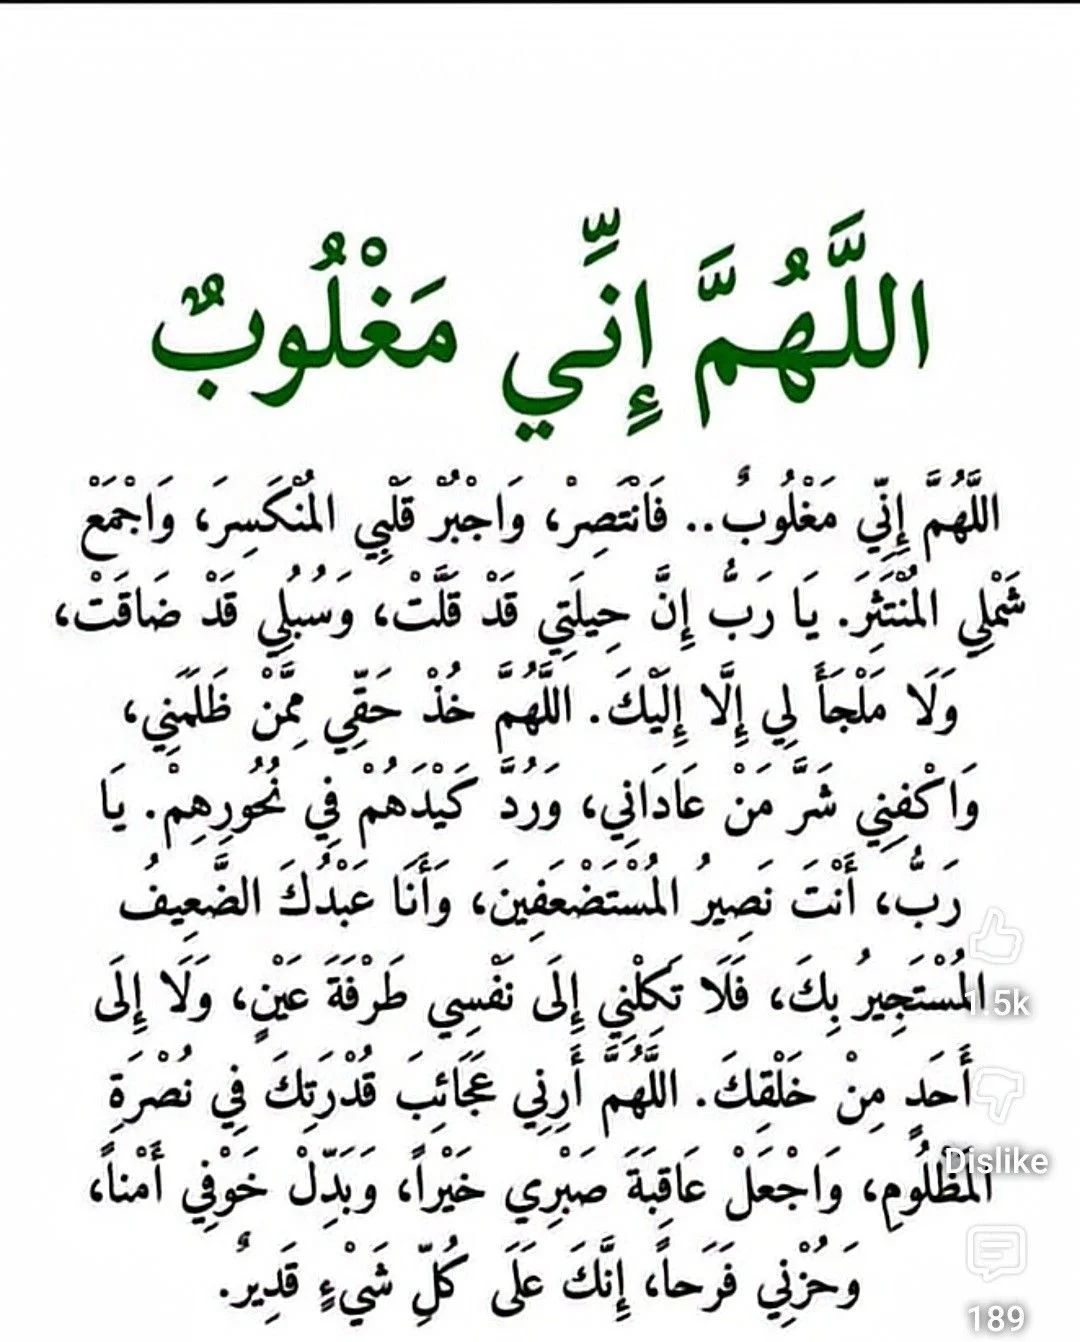 اللَّهُمَّ إِنِّي مَغْلُوبٌ
اللَّهُمَّ إِنِّي مَغْلُوبٌ.. فَانْتَصِرْ، وَاجْبُرْ قَلْبِي المُنْكَسِرَ، وَاجْمَعْ
شَمْلِي المُنْتَثِرَ. يَا رَبُّ إِنَّ حِيلَتِي قَدْ قَلَّتْ، وَسُبُلِي قَدْ ضَاقَتْ،
وَلَا مَلْجَأَ لِي إِلَّا إِلَيْكَ. اللَّهُمَّ خُذْ حَقِّي مِمَّنْ ظَلَمَنِي،
وَاكْفِنِي شَرَّ مَنْ عَادَانِي، وَرُدَّ كَيْدَهُمْ فِي نُحُورِهِمْ. يَا
رَبُّ، أَنْتَ نَصِيرُ المُسْتَضْعَفِينَ، وَأَنَا عَبْدُكَ الضَّعِيفُ
المُسْتَجِيرُ بِكَ، فَلَا تَكِلْنِي إِلَى نَفْسِي طَرْفَةَ عَيْنٍ، وَلَا إِلَى
أَحَدٍ مِنْ خَلْقِكَ. اللَّهُمَّ أَرِنِي عَجَائِبَ قُدْرَتِكَ فِي نُصْرَةِ
المَظْلُومِ، وَاجْعَلْ عَاقِبَةَ صَبْرِي خَيْراً، وَبَدِّلْ خَوْفِي أَمْناً،
وَحُزْنِي فَرَحاً، إِنَّكَ عَلَى كُلِّ شَيْءٍ قَدِيرٌ.
1.5k
Dislike
189